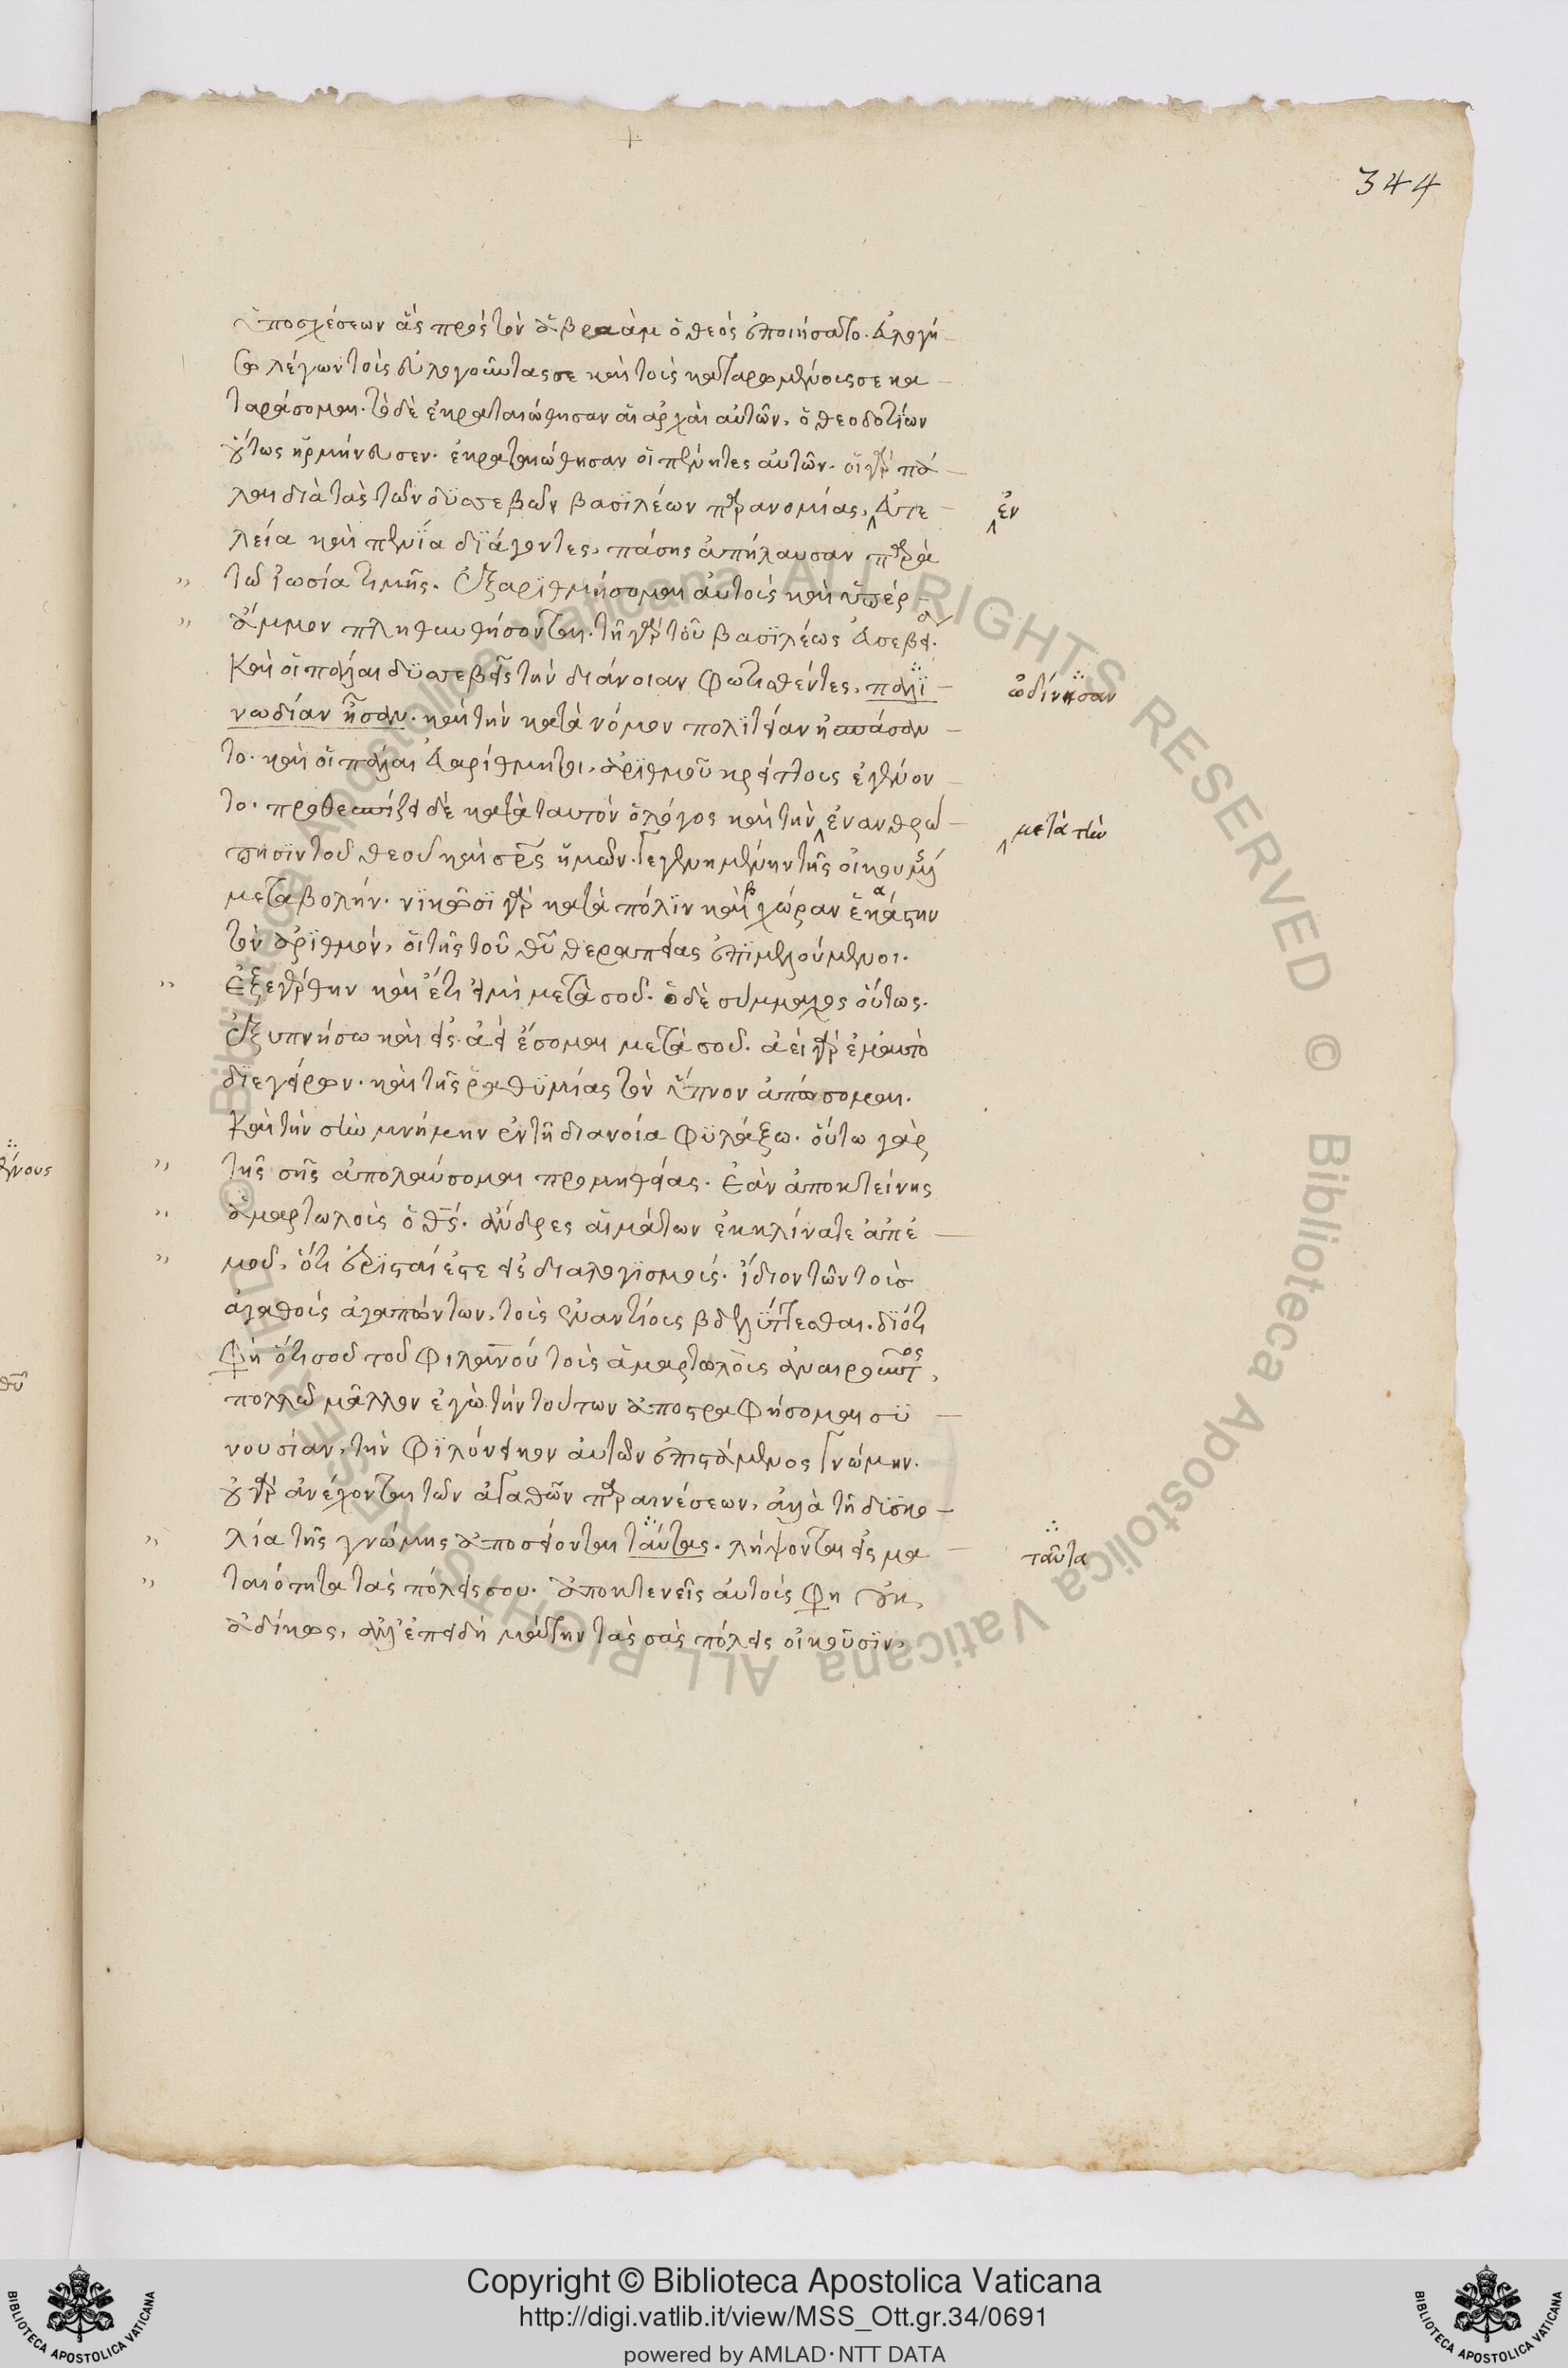 344
ὑποσχέσεων ἃς πρὸς τὸν ἀβραὰμ ὁ θεὸς ἐποιήσατο. εὐλογή
σω λέγων τοὺς εὐλογοῦντας σε καὶ τοὺς καταρωμένους σε κα
ταράσομαι. τὸ δὲ ἐκραταιώθησαν αἱ ἀρχαὶ αὐτῶν, ὁ θεοδοτίων
οὕτως ἡρμήνευσεν. ἐκραταιώθησαν οἱ πένητες αὐτῶν. οἱ γὰρ πά
λαι διὰ τὰς τῶν δυσσεβῶν βασιλέων παρανομίας, εὐτε
ἐν
λεία καὶ πενία διάγοντες, πάσης ἀπήλαυσαν παρὰ
τῶ ἰωσία τιμῆς. ἐξαριθμήσομαι αὐτοὺς καὶ ὑπὲρ
ἄμμον πληθυνθήσονται. τῇ γὰρ τοῦ βασιλέως εὐσεβεία
καὶ οἱ πάλαι δυσσεβεῖς τὴν διάνοιαν φωτισθέντες, παλι
ὠδίνησαν
νωδίαν ᾖσαν. καὶ τὴν κατὰ νόμον πολιτείαν ἠσπάσαν
το. καὶ οἱ πάλαι εὐαρίθμητοι, ἀριθμοῦ κρείττους ἐγένον
το. προθεσπίζει δὲ κατὰ ταυτὸν ὁ λόγος καὶ τὴν ἐνανθρώ
μετὰ τὴν
πησιν τοῦ θεοῦ καὶ σρς ἡμῶν. γεγενημένην τῆς οἰκουμένης
μεταβολήν. νικῶσι γὰρ κατὰ πόλιν καὶ χώραν ἑκάστην
τὸν ἀριθμόν, οἱ τῆς τοῦ θυ θεραπείας ἐπιμελούμενοι.
ἐξεγέρθην καὶ ἔτι εἰμὶ μετὰ σοῦ. ὁ δὲ σύμμαχος οὕτως.
ἐξυπνήσω καὶ εἰς ἀεὶ ἔσομαι μετὰ σοῦ. ἀεὶ γὰρ ἐμαυτὸ
διεγείρων. καὶ τῆς ῥαθυμίας τὸν ὕπνον ἀπώσομαι.
καὶ τὴν σὴν μνήμην ἐν τῇ διανοία φυλάξω. οὕτω γὰρ
τῆς σῆς ἀπολαύσομαι προμηθείας. ἐὰν ἀποκτείνης
ἁμαρτωλοὺς ὁ θς. ἄνδρες αἱμάτων ἐκκλίνατε ἀπ' ἐ
μοῦ, ὅτι ἐρισταί ἐστε εἰς διαλογισμούς. ἴδιον τῶν τοὺς
ἀγαθοὺς ἀγαπώντων, τοὺς ἐναντίους βδελύττεσθαι. διότι
φη ὅτι σοῦ τοῦ φιλανου τοὺς ἁμαρτωλοὺς ἀναιροῦντος,
πολλῶ μᾶλλον ἐγὼ τὴν τούτων ἀποστραφήσομαι συ
νουσίαν, τὴν φιλόνεικον αὐτῶν ἐπιστάμενος γνώμην.
οὐ γὰρ ἀνέχονται τῶν ἀγαθῶν παραινέσεων, ἀλλὰ τῇ δυσκο
λία τῆς γνώμης ἀποσείονται ταύτας. λήψονται εἰς μα
ταῦτα
ταιότητα τὰς πόλεις σου. ἀποκτενεῖς αὐτοὺς φη οὐκ
ἀδίκως, ἀλλ' ἐπειδὴ μάτην τὰς σὰς πόλεις οἰκοῦσιν,
Copyright © Biblioteca Apostolica Vaticana
http://digi.vatlib.it/view/MSS_Ott.gr.34/0691
powered by AMLAD·NTT DATA